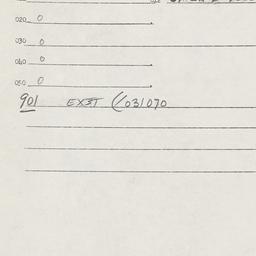 020 0
030 0
040 0
050 0
901 EXIT (031070